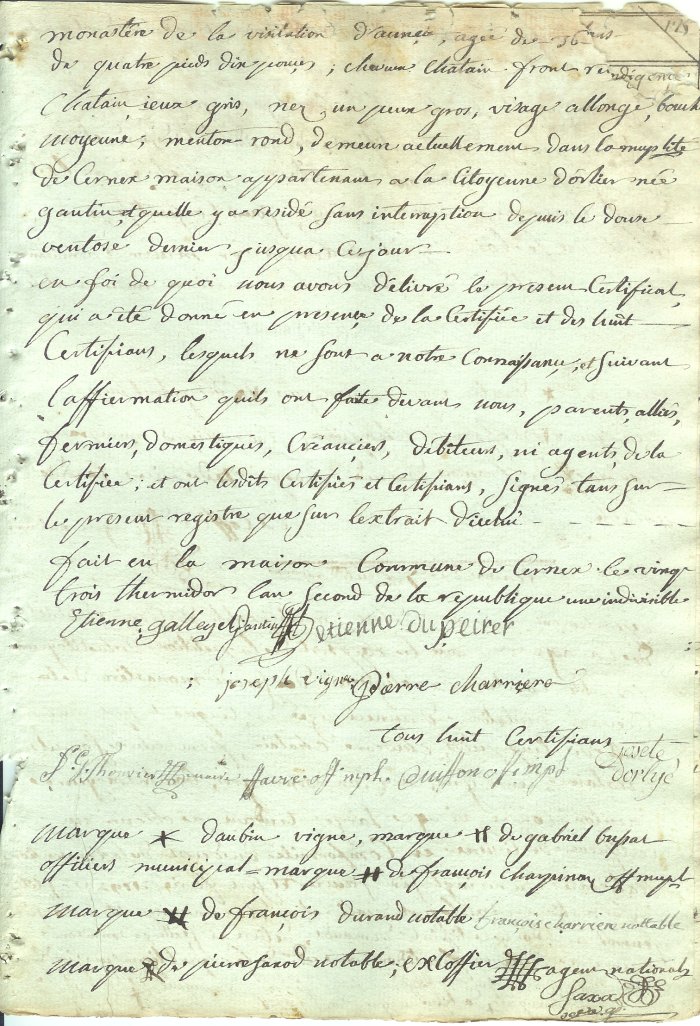 monastère de la visitation d'annecÿ, agée de 36 ans
de quatre pieds dix pouces, cheveux Chatain front
indigence
Chatain, ieux gris, nez un peux gros, visage allongé, bouch
moyenne, menton rond, demeure actuellement dans la muplité
de Cernex maison appartenant a la Citoyenne d'orlier née
gantin, et quelle y a residé sans interruption depuis le douse
ventose dernier jusqua ce jour
en foi de quoi nous avons délivré le present Certificat,
qui a été donné en presence de la Certifiée et des huit
Certifians, lesquels ne sont a notre Connaissance, et suivant
l'affiermation quils ont faite devant nous, parents, alliés,
fermiers, domestiques, Créanciers, débiteurs, ni agents de la
Certifiée; et ont lesdits Certifiés et Certifians, signés tans sur
le present registre que sur lextrait dicelui
fait en la maison Commune de Cernex le vingt
trois thermidor lan second de la republique une indivisible
Etienne galley gantin etienne dupeirer
joseph vigne pierre charriere
tous huit Certifians
josete
dorlyé
maire favre off mpl Duiffon off mpl
marque d'aubin vigne, marque de gabriel bussat
officiers municipal = marque de françois Charpinaz off mupl
marque de françois durand notable françois charriere nottable
marque de pierre saxod notable, excoffier agent national
Saxod